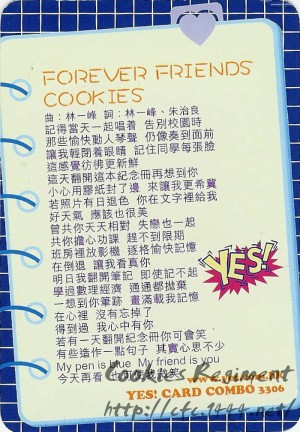 FOREVER FRIENDS
COOKIES
曲：林一峰 詞：林一峰、朱治良
記得當天一起唱着 告別校園時
那些愉快動人琴聲 仍像奏到面前
讓我輕閉着眼睛 記住同學每張臉
這感覺彷彿更新鮮
這天翻開這本紀念冊再想到你
小心用膠紙封了邊 來讓我更希冀
若照片有日退色 你在文字裡給我
好天氣 應該也很美
曾共你天天相對 失戀也一起
共你擔心功課 趕不到限期
班房裡放影機 逐格愉快記憶
在倒退 讓我看真你
明日我翻開筆記 即使記不起
學過數理經濟 通通都拋棄
一想到你筆跡 畫滿載我記憶
在心裡 沒有忘掉了
得到過 我心中有你
若有一天翻開紀念冊你可會笑
有些造作一點句子 其實心思不少
My pen is blue My friend is you
今天再看 也可
YES!
Cookies Regiment
YES! CARD COMBO 3306
http://cfc.1444.net/